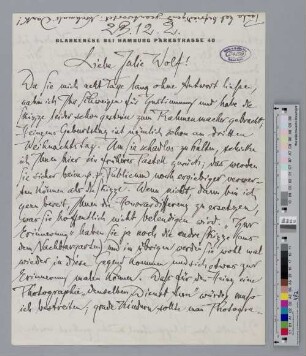 23.12.
BLANKENESE BEI HAMBURG PARKSTRASSE 48
Liebe Julie Wolf!
Da Sie mich acht Tage lang ohne Antwort liessen,
nahm ich Ihr Schweigen für Zustimmung und habe die
Skizze leider schon gestern zum Rahmenmacher gebracht.
Geburtstag ist nämlich schon am dritten
Weihnachtstag. Um Sie schadlos zu halten, schicke
ich Ihnen hier ein früheres Pastell zurück; das werden
Sie sicher beim Publikum noch ergiebiger verwer-
ten können als die Skizze. Wenn nicht, dann bin ich
gern bereit, Ihnen die Honorardifferenz zu ersetzen,
was Sie hoffentlich nicht beleidigen wird. Zur
Erinnerung haben Sie ja noch die andre Skizze (aus
dem Nachbargarten) und im übrigen werden Sie wohl mal
wieder in diese Gegend kommen und sich etwas zur
Erinnerung malen können. Dass für den eine
Photographie denselben Dienst tun würde, muss
ich bestreiten; grade Kindern sollte man Photogra-